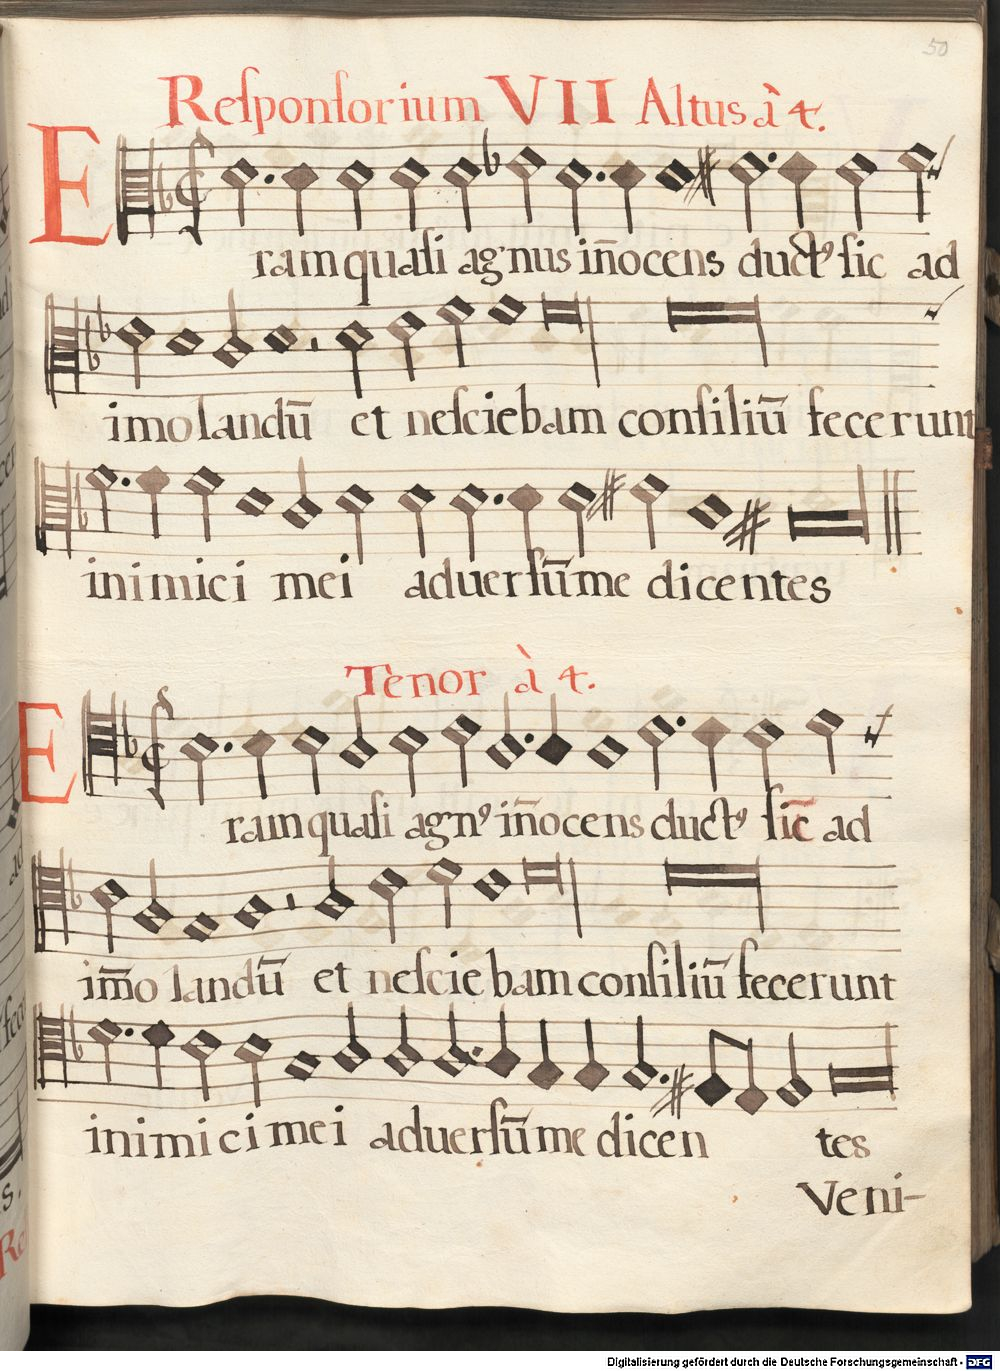 50
Reſponſorium VII Altus à 4.
Eram quaſi agnus iñocens duct9 ſic ad
imolandū et neſciebam conſiliū fecerunt
inimici mei aduerſūme dicentes
Tenor à 4.
Eram quaſi agn9 iñocens duct9 ſic ad
im̄olandū et neſciebam conſiliū fecerunt
inimici mei aduerſūme dicen tes
Veni-
Digitalisierung gefördert durch die Deutsche Forschungsgemeinschaft - DFG